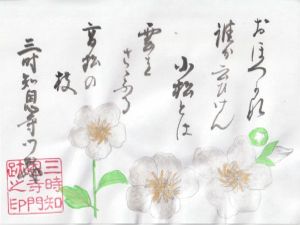 おほつかな
誰か云ひけん
小松とは
雲を
さゝふる
高松の
枝
三時知恩寺門
三時知
恩寺門
跡之印